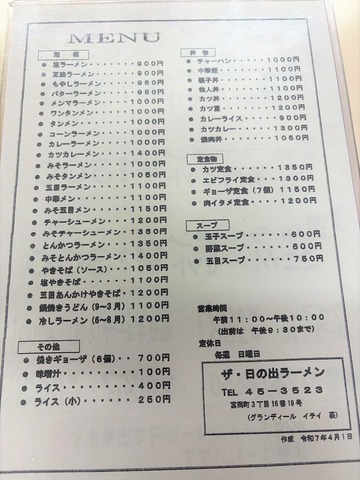 MENU
麺類
● 塩ラーメン・・・・・・・900円
● 正油ラーメン・・・・・・900円
● もやしラーメン・・・・・950円
● バターラーメン・・・・・950円
● メンマラーメン・・・・1000円
● ワンタンメン・・・・・1000円
● タンメン・・・・・・・1000円
● コーンラーメン・・・・1000円
● カレーラーメン・・・・1000円
● カツカレーメン・・・・1400円
● みそラーメン・・・・・1000円
● みそタンメン・・・・・1050円
● 五目ラーメン・・・・・1100円
● 中華メン・・・・・・・1100円
● みそ五目メン・・・・・1150円
● チャーシューメン・・・1200円
● みそチャーシューメン・1350円
● とんかつラーメン・・・1350円
● みそとんかつラーメン・1400円
● やきそば（ソース）・・1050円
● 塩やきそば・・・・・・1100円
● 五目あんかけやきそば・1200円
● 鍋焼きうどん（9～3月）1100円
● 冷しラーメン（6～8月）1200円
その他
● 焼きギョーザ（6個）・・700円
● 味噌汁・・・・・・・・・100円
● ライス・・・・・・・・・400円
● ライス（小）・・・・・・250円
丼物
● チャーハン・・・・・・1000円
● 中華飯・・・・・・・・1100円
● 親子丼・・・・・・・・1100円
● 他人丼・・・・・・・・1100円
● カツ丼・・・・・・・・1200円
● カツ重・・・・・・・・1200円
● カレーライス・・・・・・900円
● カツカレー・・・・・・1300円
● 焼肉丼・・・・・・・・1050円
定食物
● カツ定食・・・・・・・1350円
● エビフライ定食・・・・1300円
● ギョーザ定食（7個）1150円
● 肉イタメ定食・・・・1200円
スープ
● 玉子スープ・・・・・・・600円
● 野菜スープ・・・・・・・600円
● 五目スープ・・・・・・・750円
営業時間
午前11：00～午後10：00
（出前は 午後9：30まで）
定休日
毎週 日曜日
ザ・日の出ラーメン
TEL 45－3523
富岡町3丁目16番19号
（グランディール イチイ 裏）
作成 令和7年4月1日